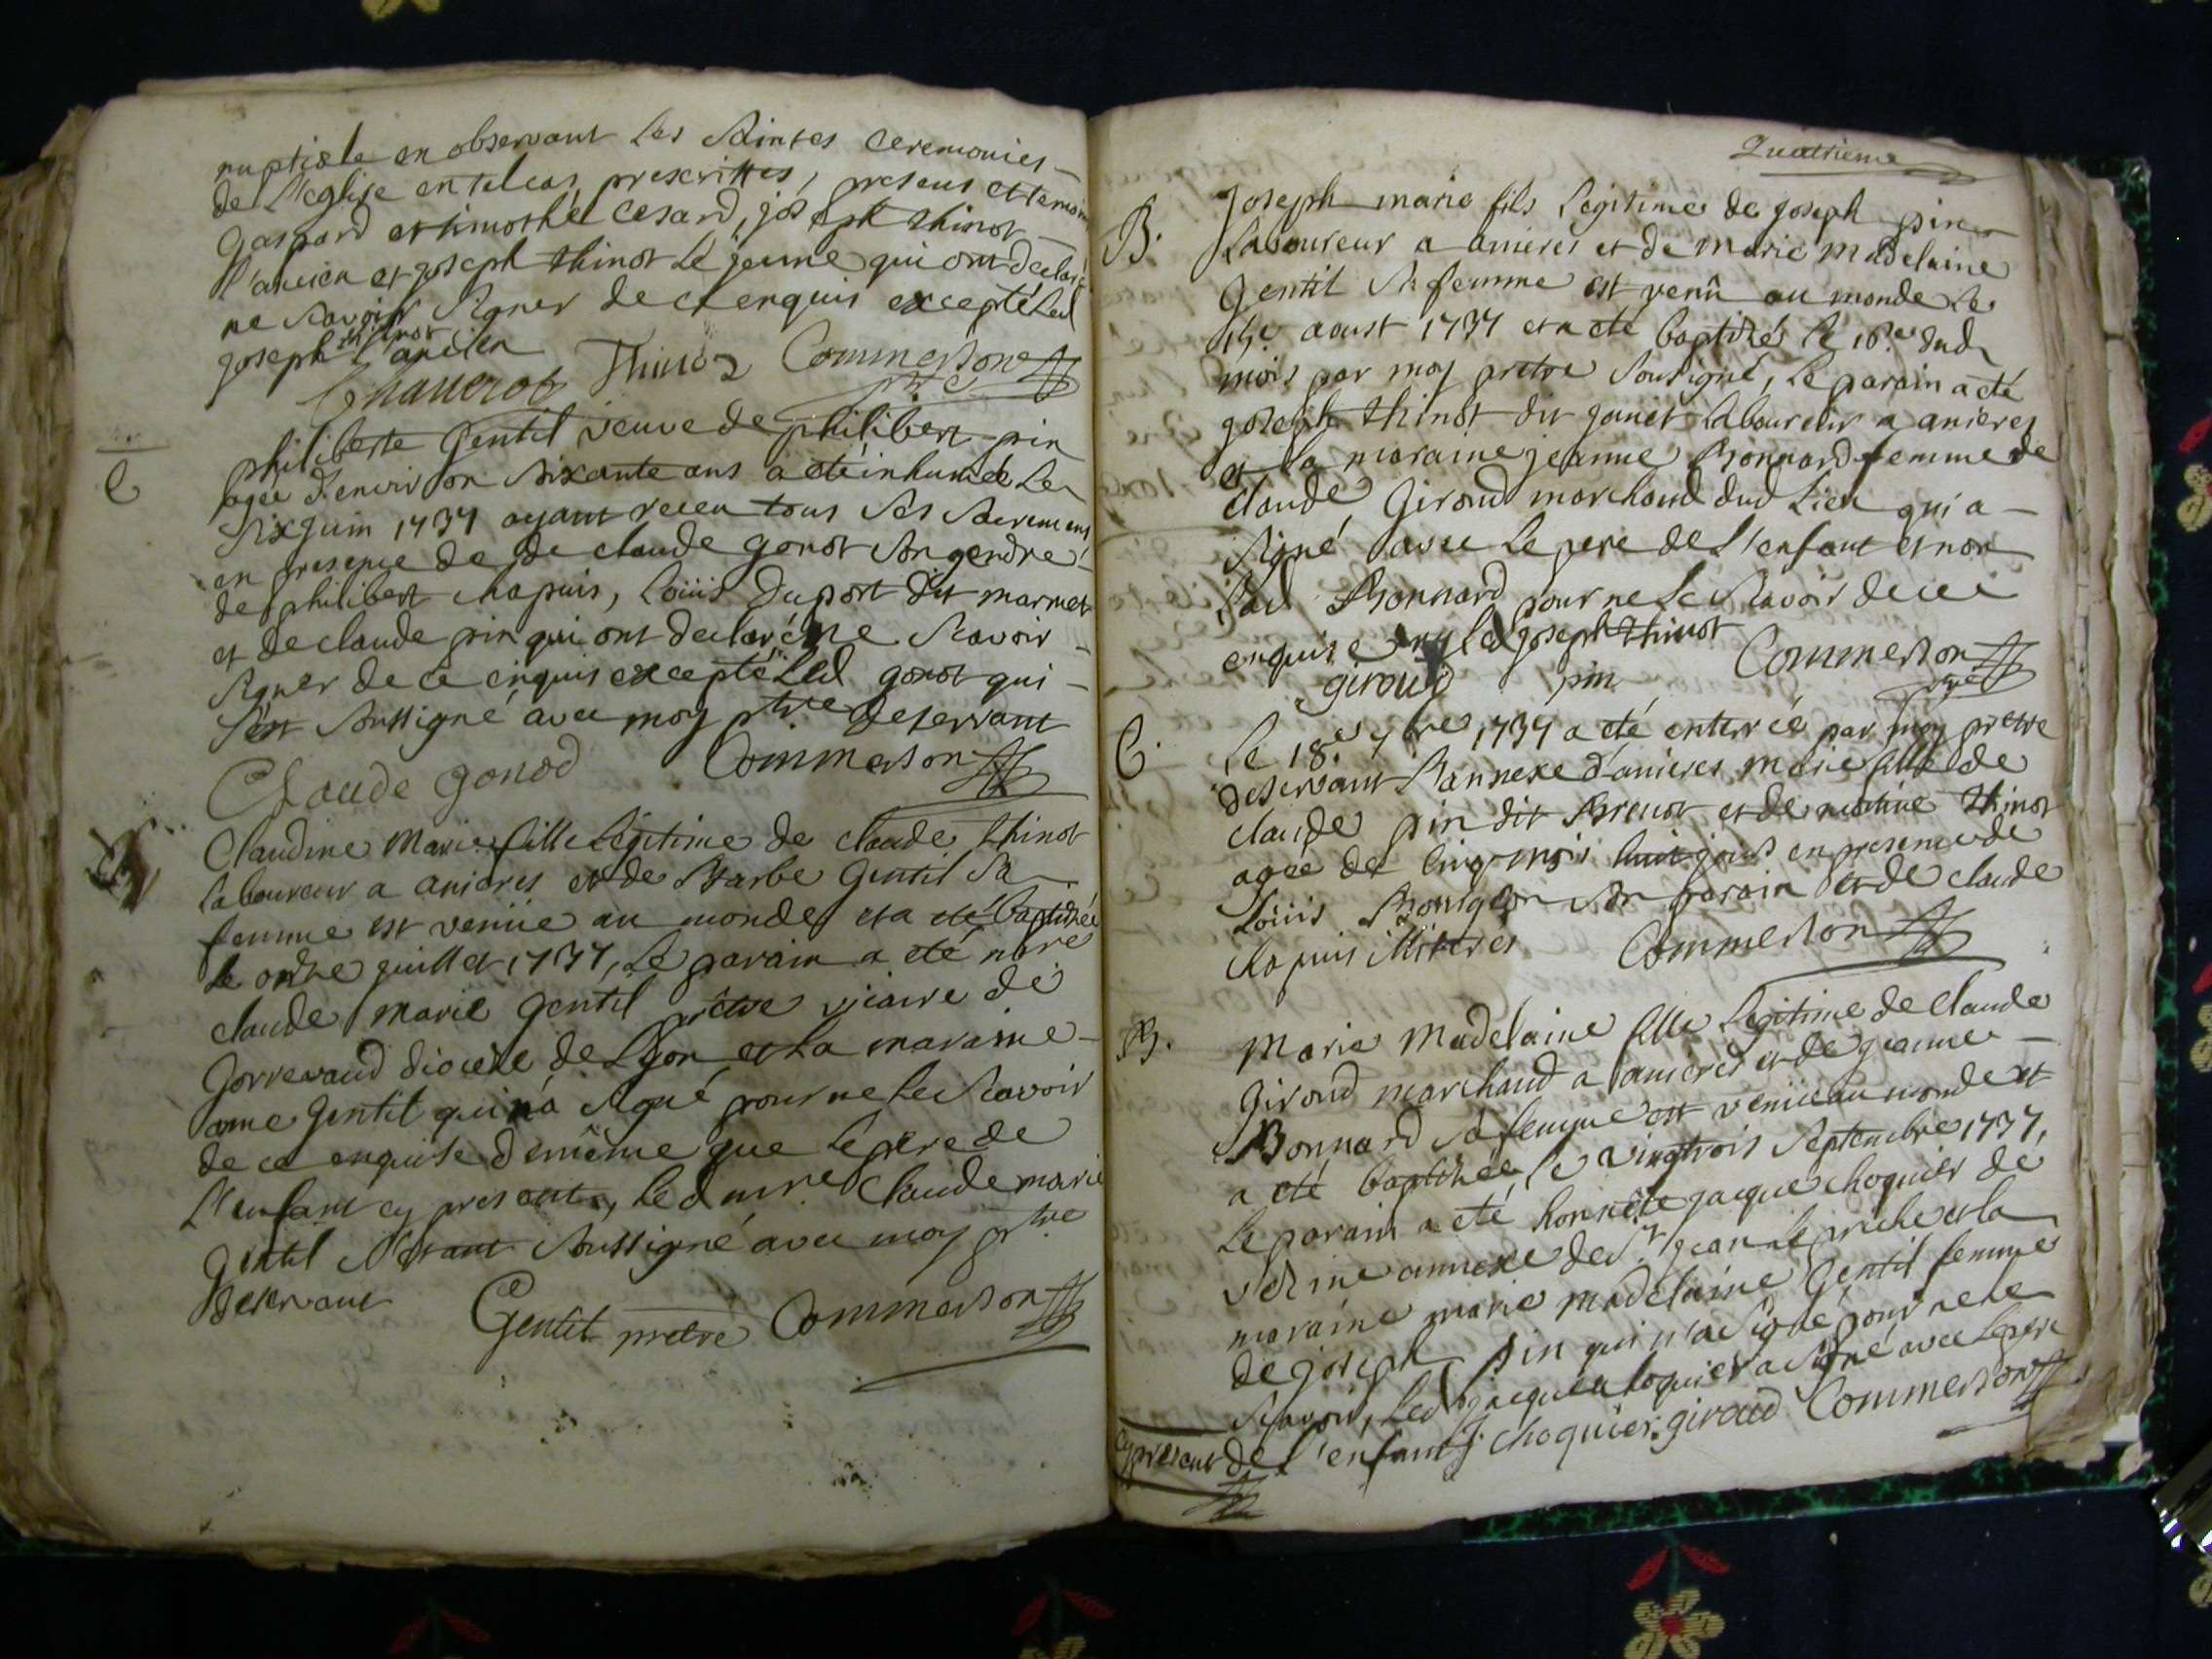 nuptiale en observant les Saintes Ceremonies
de l'Eglise en tel cas prescrittes, presens et temoins
Gaspard et timothé Cesard, joseph thinot
l'ancien et joseph thinot le jeune qui ont declaré
ne Savoir Signer de ce enquis excepté led
joseph thinot l'ancien
Thinot Commerson
ptre
philiberte Gentil veuve de philibert pin
C
agée d'environ Soixante ans a été inhumée le
Six juin 1737 ayant receu tous Ses Sacremens
en presence de de claude gonot Son gendre
de philibert chapuis, Loüis duport dit marmet
et de claude pin qui ont declaré ne Scavoir
Signer de ce enquis excepté led gonot qui
S'est Soussigné avec moy ptre deservant
Claude gonod Commerson
Claudine Marie fille Légitime de claude thinot
laboureur a anieres et de Barbe Gentil Sa
femme est venüe au monde et a été baptisée
le onze juillet 1737, le parain a été mre
claude marie Gentil prêtre vicaire de
Gorrevaud diocese de Lyon et la maraine
ame Gentil qui n'a Signé pour ne le Scavoir
de ce enquise de même que le pere de
l'enfant cy present, led mre Claude marie
Gentil S'étant Soussigné avec moy ptre
deservant
Gentil pretre Commerson
Quatrieme
B.
Joseph marie fils Legitime de joseph pin
Laboureur a anieres et de marie madelaine
Gentil Sa femme est venû au monde le
15e aoust 1737 et a été baptisé le 16e dud
mois par moy prêtre Sousigné, le parain a été
joseph thinot dit janet laboureur a anieres
et la maraine jeanne Bonnard femme de
claude Giroud marchand dud Lieu qui a
Signé avec le pere de l'enfant et non
lad Bonnard pour ne le Scavoir de ce
enquise ny led joseph thinot
giroud pin Commerson
ptre
C.
Le 18e 7bre 1737 a été enterrée par moy pretre
deservant l'annexe d'anieres marie fille de
claude pin dit Brenot et de thinot
agée de cinq mois huit jours en presence de
Loüis Bourgeon Son parain et de claude
chapuis illiteres Commerson
B.
Marie Madelaine fille Legitime de claude
Giroud marchand a anieres et de jeanne
Bonnard Sa femme est venüe au monde et
a été baptisée le vingtrois Septembre 1737,
Le parain a été honnête jacque choquier de
verine annexe de St jean le priche et la
maraine marie madelaine Gentil femme
de joseph pin qui n'a Signé pour ne le
Scavoir, led jacque choquier a Signé avec le pere
cy present de l'enfant J. choquier giroud Commerson